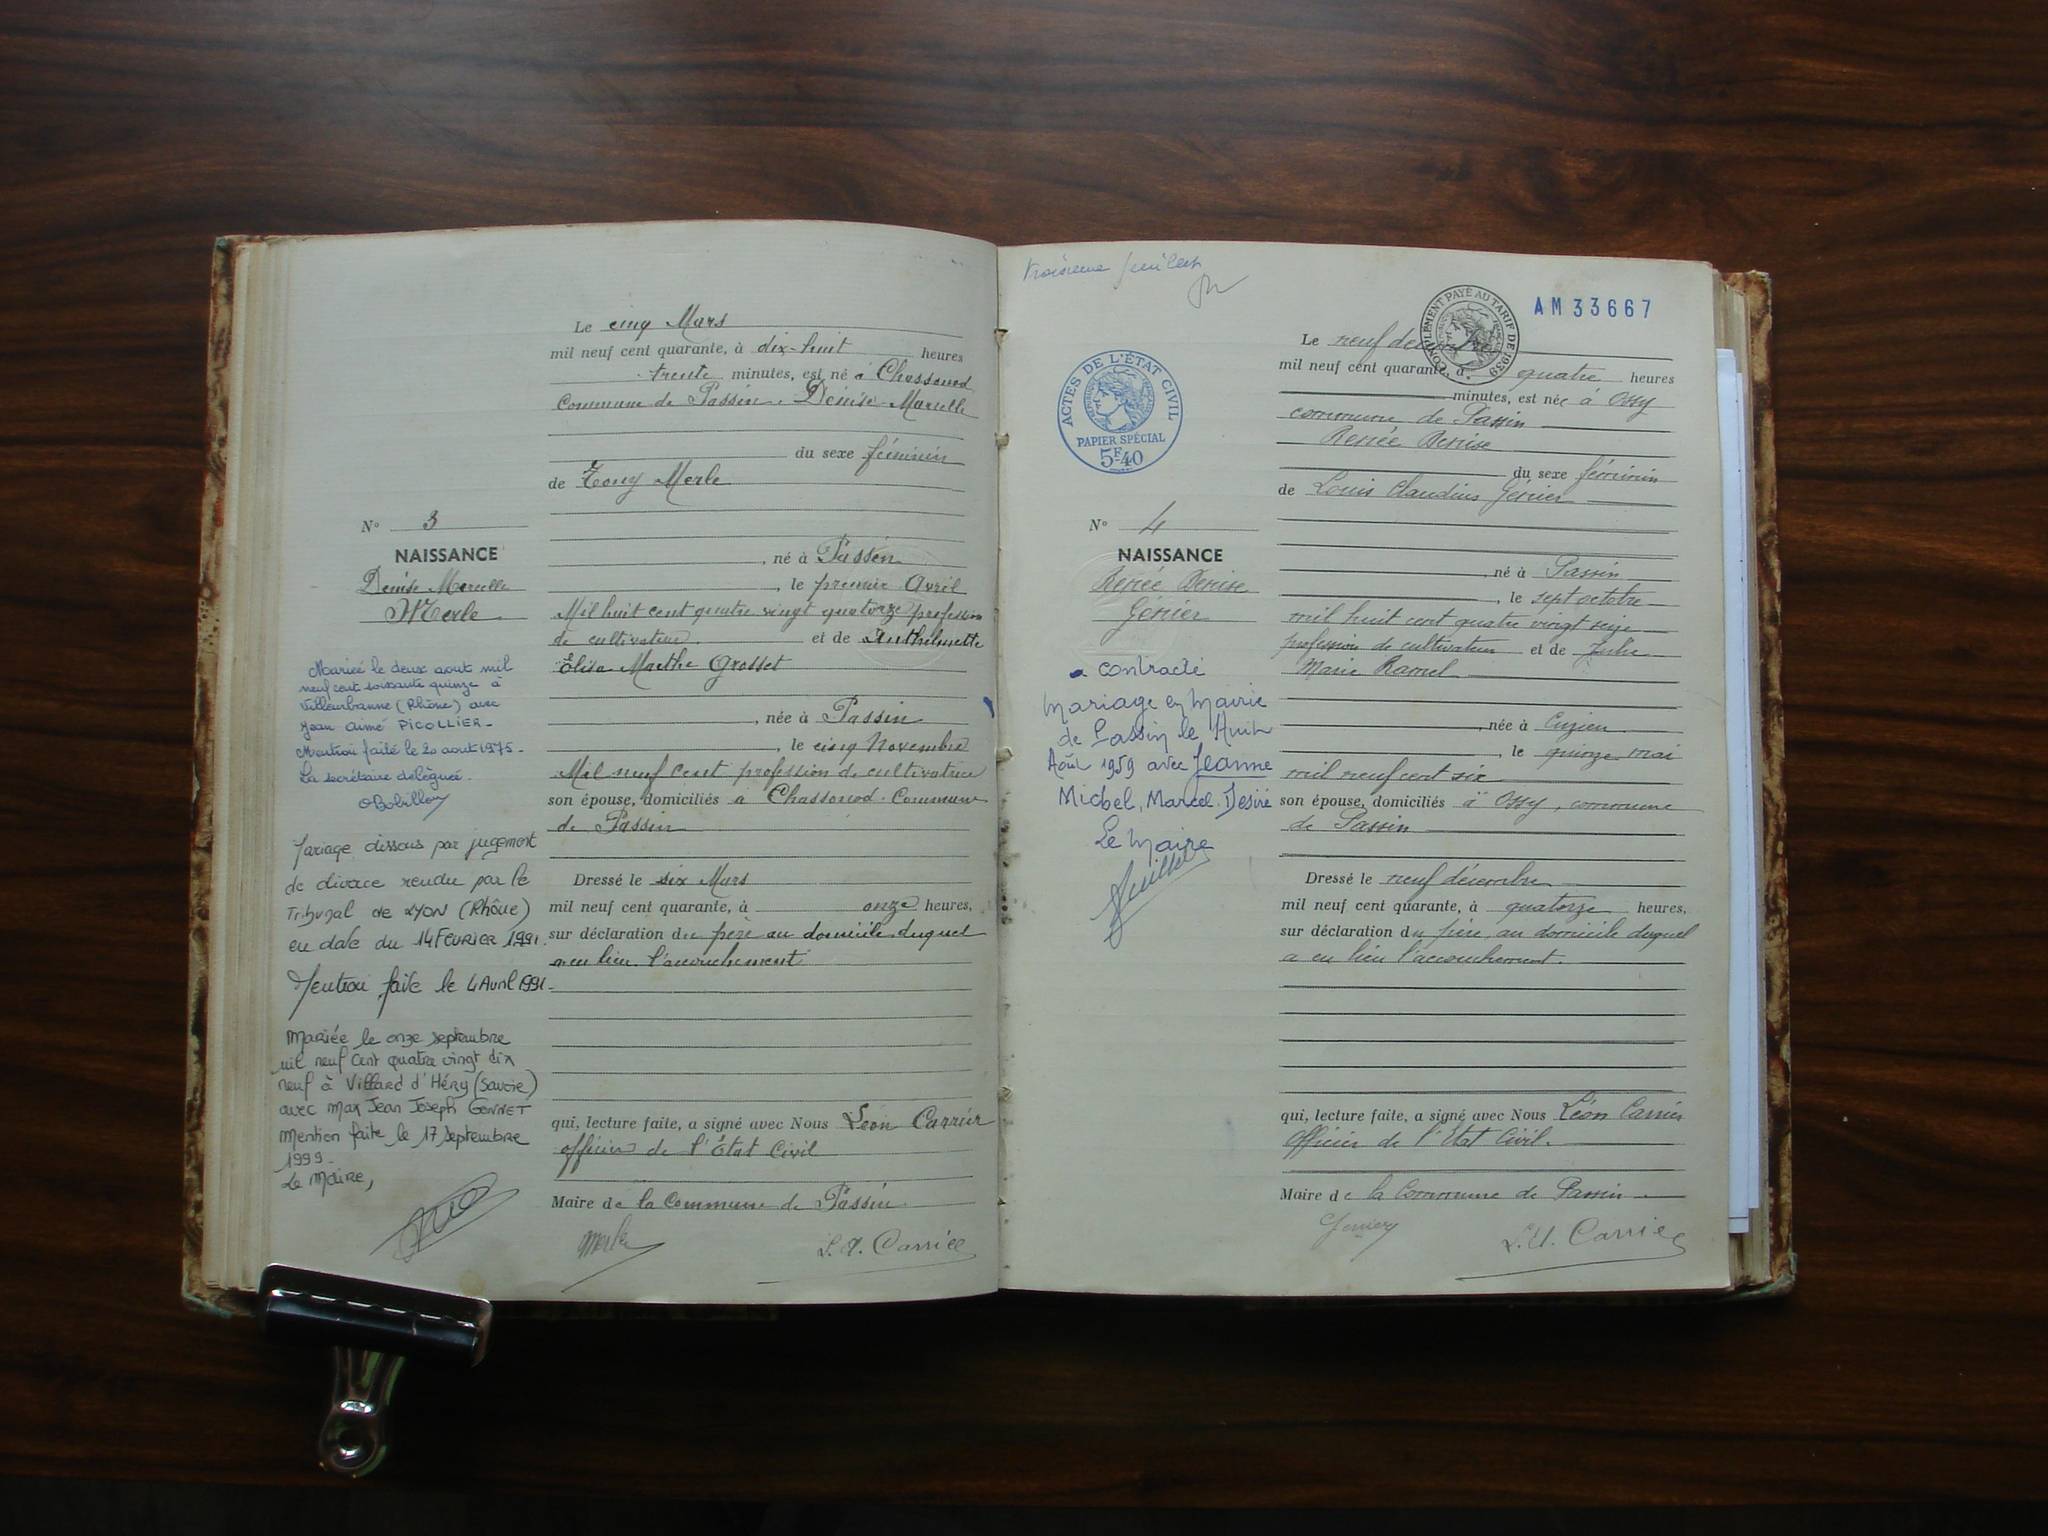 Le cinq Mars
mil neuf cent quarante, à dix-huit heures
trente minutes, est né à Chassonod
Commune de Passin. Denise Marcelle
du sexe féminin
de Tony Merle
N° 3
NAISSANCE
Denise Marcelle
Merle
, né à Passin
, le premier Avril
Mil huit cent quatre vingt quatorze profession
de cultivateur et de Anthelmette
Élisa Marthe Grosset
, née à Passin
, le cinq Novembre
Mil neuf cent profession de cultivatrice
son épouse, domiciliés à Chassonod. Commune
de Passin
Dressé le six Mars
mil neuf cent quarante, à onze heures,
sur déclaration du père au domicile duquel
a eu lieu l'accouchement
qui, lecture faite, a signé avec Nous Léon Carrier
officier de l'État Civil
Maire de la Commune de Passin
Merle
L. A. Carrier
Mariée le deux aout mil
neuf cent soissante quinze à
Villeurbanne (Rhône) avec
Jean Aimé PICOLLIER-
Mention faite le 20 aout 1975-
La secrétaire déléguée.
Mariage dissous par jugement
de divorce rendu par le
Tribunal de LYON (Rhône)
en date du 14 FEVRIER 1991.
Mention faite le 4 Avril 1991-
Mariée le onze septembre
mil neuf cent quatre vingt dix
neuf à Villard d'Héry (Savoie)
avec Max Jean Joseph GONNET
Mention faite le 17 septembre
1999-
Le Maire,
troisième feuillet
AM33667
COMPLÉMENT PAYÉ AU TARIF DE 1939
ACTES DE L'ÉTAT CIVIL
RÉPUBLIQUE FRANÇAISE
PAPIER SPÉCIAL
5F40
Le neuf décembre
mil neuf cent quarante, à quatre heures
minutes, est née à Ossy
commune de Passin
Renée Denise
du sexe féminin
de Louis Claudius Génier
N° 4
NAISSANCE
Renée Denise
Génier
, né à Passin
, le sept octobre
mil huit cent quatre vingt seize
profession de cultivateur et de Julie
Marie Ramel
, née à Cuzieu
, le quinze mai
mil neuf cent six
son épouse, domiciliés à Ossy, commune
de Passin
Dressé le neuf décembre
mil neuf cent quarante, à quatorze heures,
sur déclaration du père, au domicile duquel
a eu lieu l'accouchement.
qui, lecture faite, a signé avec Nous Léon Carrier
Officier de l'État Civil.
Maire de la Commune de Passin
Genier
L. A. Carrier
a contracté
mariage en Mairie
de Passin le Huit
Août 1959 avec Jeanne
Michel, Marcel Désiré
Le Maire